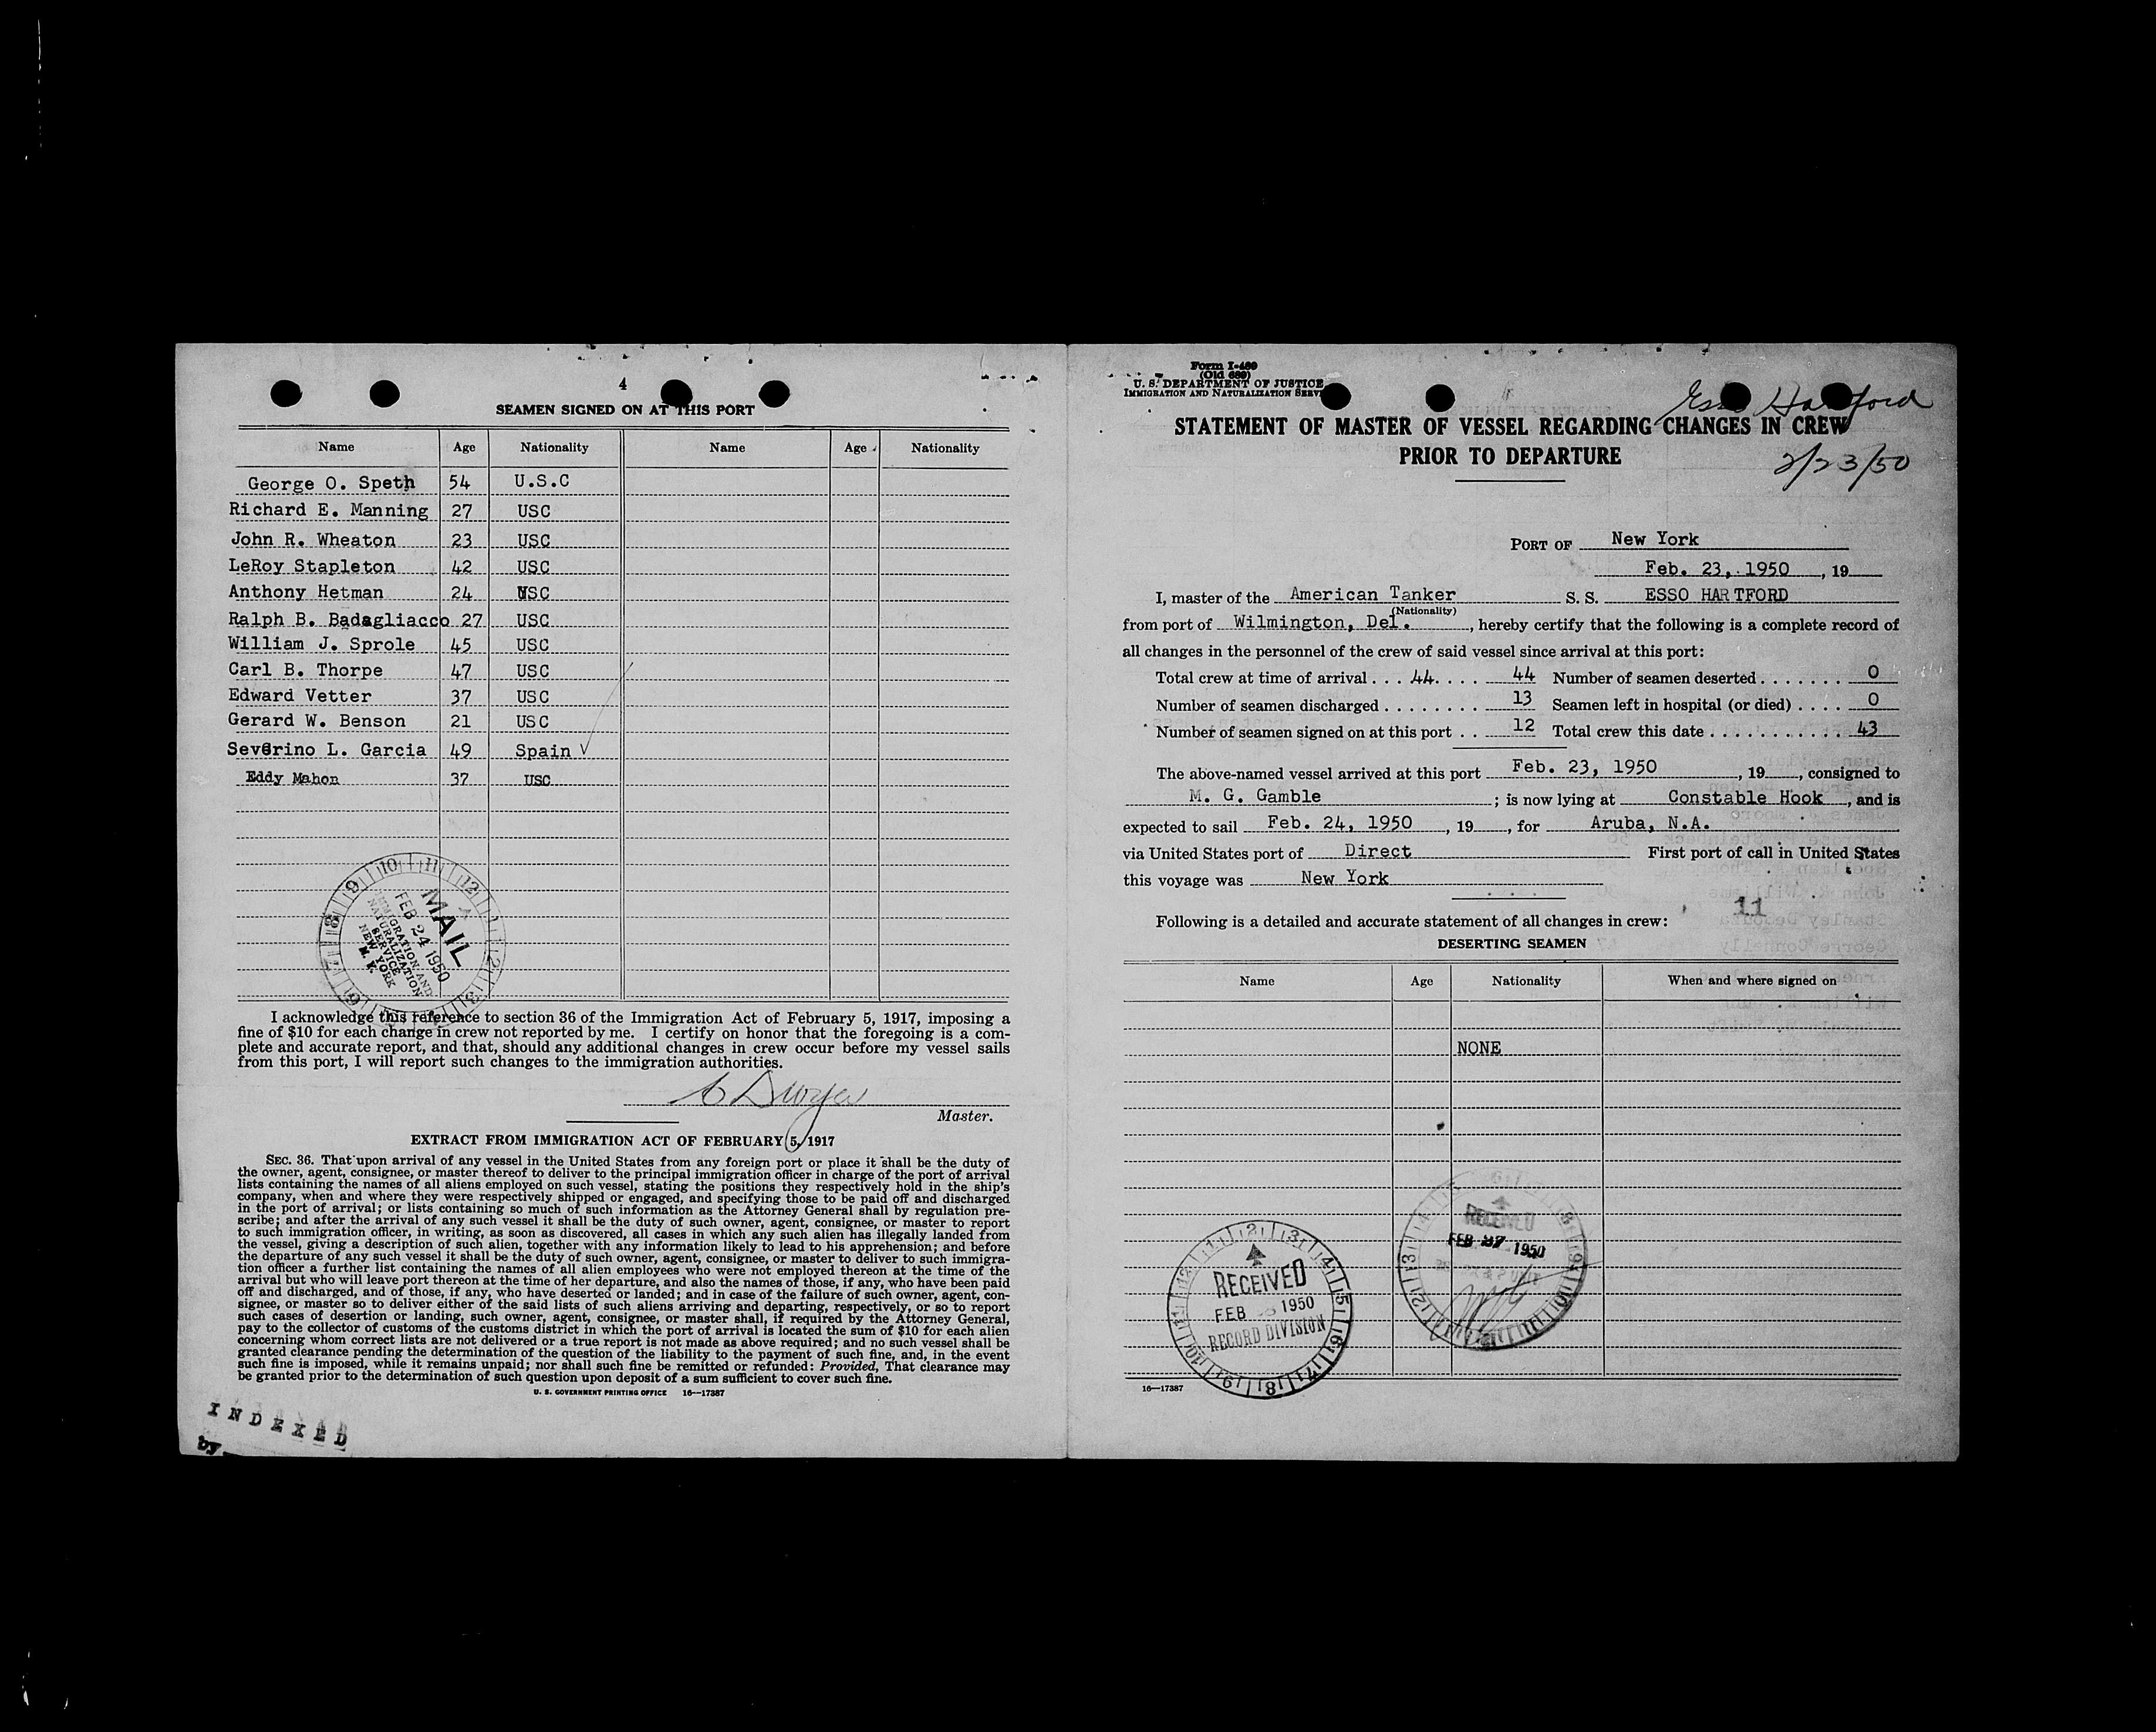 4
SEAMEN SIGNED ON AT THIS PORT
Name Age Nationality Name Age Nationality
George O. Speth 54 U.S.C
Richard E. Manning 27 USC
John R. Wheaton 23 USC
LeRoy Stapleton 42 USC
Anthony Hetman 24 USC
Ralph B. Badagliacco 27 USC
William J. Sprole 45 USC
Carl B. Thorpe 47 USC
Edward Vetter 37 USC
Gerard W. Benson 21 USC
Severino L. Garcia 49 Spain ✓
Eddy Mahon 37 USC
MAIL
FEB 24 1950
IMMIGRATION AND
NATURALIZATION
SERVICE
NEW YORK
N. Y.
I acknowledge this reference to section 36 of the Immigration Act of February 5, 1917, imposing a
fine of $10 for each change in crew not reported by me. I certify on honor that the foregoing is a com-
plete and accurate report, and that, should any additional changes in crew occur before my vessel sails
from this port, I will report such changes to the immigration authorities.
Master.
EXTRACT FROM IMMIGRATION ACT OF FEBRUARY 5, 1917
SEC. 36. That upon arrival of any vessel in the United States from any foreign port or place it shall be the duty of
the owner, agent, consignee, or master thereof to deliver to the principal immigration officer in charge of the port of arrival
lists containing the names of all aliens employed on such vessel, stating the positions they respectively hold in the ship's
company, when and where they were respectively shipped or engaged, and specifying those to be paid off and discharged
in the port of arrival; or lists containing so much of such information as the Attorney General shall by regulation pre-
scribe; and after the arrival of any such vessel it shall be the duty of such owner, agent, consignee, or master to report
to such immigration officer, in writing, as soon as discovered, all cases in which any such alien has illegally landed from
the vessel, giving a description of such alien, together with any information likely to lead to his apprehension; and before
the departure of any such vessel it shall be the duty of such owner, agent, consignee, or master to deliver to such immigra-
tion officer a further list containing the names of all alien employees who were not employed thereon at the time of the
arrival but who will leave port thereon at the time of her departure, and also the names of those, if any, who have been paid
off and discharged, and of those, if any, who have deserted or landed; and in case of the failure of such owner, agent, con-
signee, or master so to deliver either of the said lists of such aliens arriving and departing, respectively, or so to report
such cases of desertion or landing, such owner, agent, consignee, or master shall, if required by the Attorney General,
pay to the collector of customs of the customs district in which the port of arrival is located the sum of $10 for each alien
concerning whom correct lists are not delivered or a true report is not made as above required; and no such vessel shall be
granted clearance pending the determination of the question of the liability to the payment of such fine, and, in the event
such fine is imposed, while it remains unpaid; nor shall such fine be remitted or refunded: Provided, That clearance may
be granted prior to the determination of such question upon deposit of a sum sufficient to cover such fine.
U. S. GOVERNMENT PRINTING OFFICE 16—17387
INDEXED
by
Form I-489
(Old 689)
U. S. DEPARTMENT OF JUSTICE
IMMIGRATION AND NATURALIZATION SERV
Esso Hartford
STATEMENT OF MASTER OF VESSEL REGARDING CHANGES IN CREW
PRIOR TO DEPARTURE
2/23/50
PORT OF New York
Feb. 23, 1950, 19
I, master of the American Tanker S. S. ESSO HARTFORD
(Nationality)
from port of Wilmington, Del., hereby certify that the following is a complete record of
all changes in the personnel of the crew of said vessel since arrival at this port:
Total crew at time of arrival . . . 44. . . . 44 Number of seamen deserted . . . . . . . 0
Number of seamen discharged . . . . . . . . 13 Seamen left in hospital (or died) . . . . 0
Number of seamen signed on at this port . . 12 Total crew this date . . . . . . . . . . . . 43
The above-named vessel arrived at this port Feb. 23, 1950, 19, consigned to
M. G. Gamble; is now lying at Constable Hook, and is
expected to sail Feb. 24, 1950, 19, for Aruba, N.A.
via United States port of Direct First port of call in United States
this voyage was New York
11
Following is a detailed and accurate statement of all changes in crew:
DESERTING SEAMEN
Name Age Nationality When and where signed on
NONE
RECEIVED
FEB 1950
RECORD DIVISION
RECEIVED
FEB 27 1950
16—17387